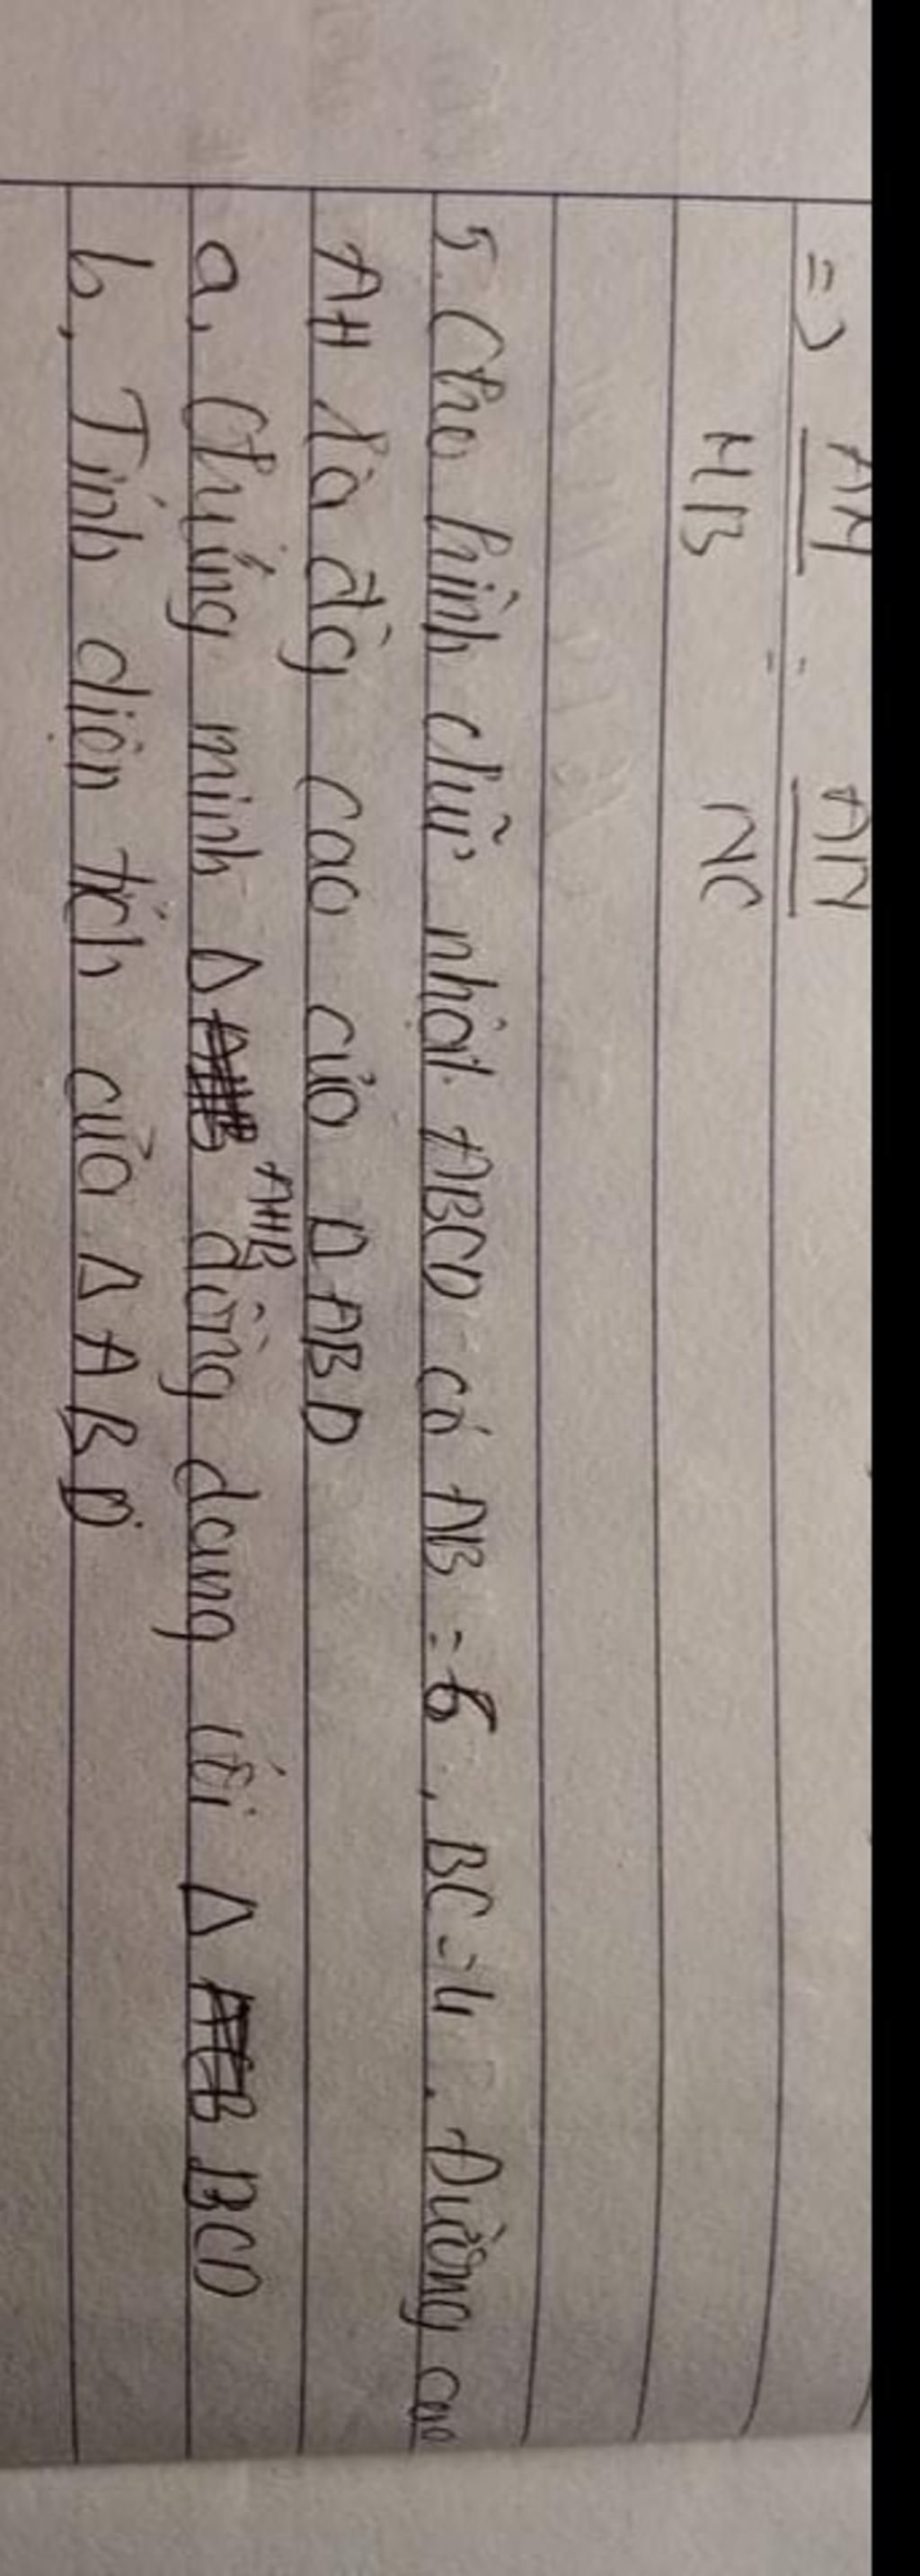 => AM = AN
HB NC
5. Cho hình chữ nhật ABCD có AB = 6, BC = 4. Đường cao
AH là đg cao của Δ ABD
a, Chứng minh Δ AHB đồng dạng với Δ BCD
b, Tính diện tích của Δ ABD